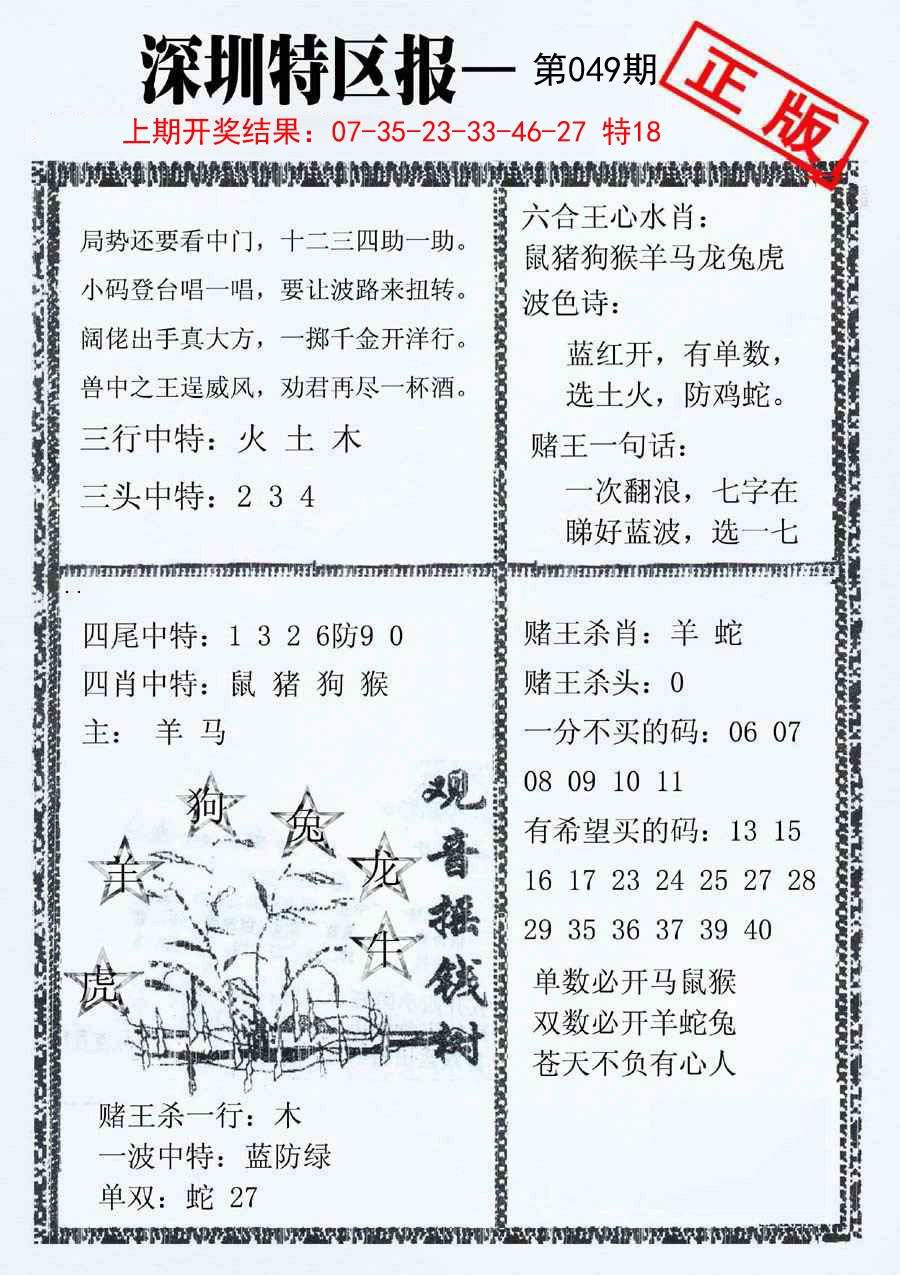 深圳特区报— 第049期
正版
上期开奖结果：07-35-23-33-46-27 特18
局势还要看中门，十二三四助一助。
小码登台唱一唱，要让波路来扭转。
阔佬出手真大方，一掷千金开洋行。
兽中之王逞威风，劝君再尽一杯酒。
三行中特：火 土 木
三头中特：2 3 4
六合王心水肖：
鼠猪狗猴羊马龙兔虎
波色诗：
蓝红开，有单数，
选土火，防鸡蛇。
赌王一句话：
一次翻浪，七字在
睇好蓝波，选一七
四尾中特：1 3 2 6防9 0
四肖中特：鼠 猪 狗 猴
主： 羊 马
狗
兔
羊
龙
牛
虎
观音摇钱树
赌王杀一行：木
一波中特：蓝防绿
单双：蛇 27
赌王杀肖：羊 蛇
赌王杀头：0
一分不买的码：06 07
08 09 10 11
有希望买的码：13 15
16 17 23 24 25 27 28
29 35 36 37 39 40
单数必开马鼠猴
双数必开羊蛇兔
苍天不负有心人